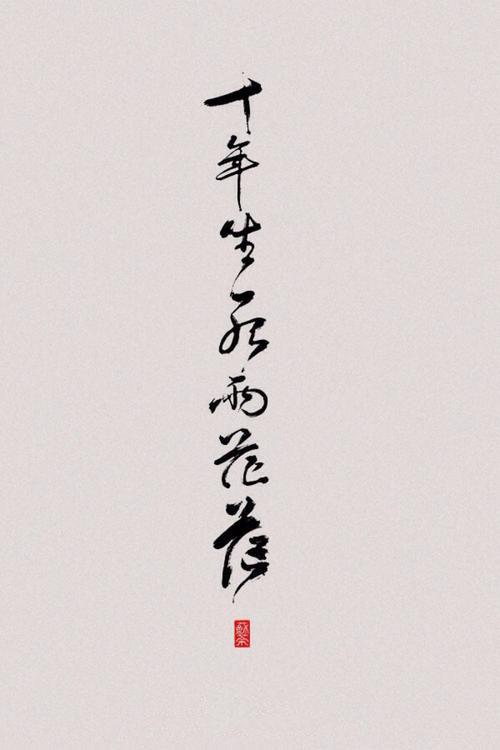 十年生死兩茫茫